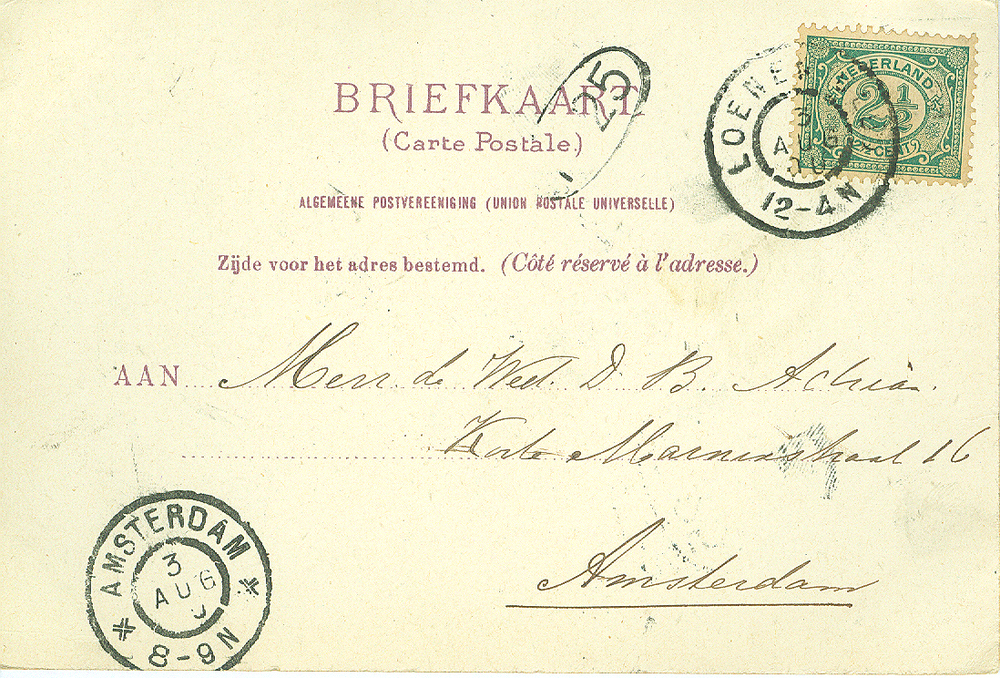 BRIEFKAART
(Carte Postale.)
25
ALGEMEENE POSTVEREENIGING (UNION POSTALE UNIVERSELLE)
Zijde voor het adres bestemd. (Côté réservé à l'adresse.)
NEDERLAND
2½
CENT
LOENEN
3
AUG
12-4N
AAN Mevr. de Wed. D. B. Adrian.
Korte Marnixstraat 16
Amsterdam
AMSTERDAM
3
AUG
8-9N